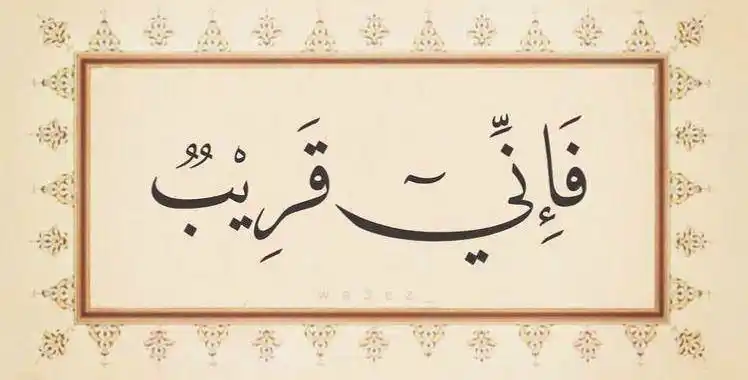 فَإِنِّيٓ قَرِيْبٌ
wa3ez_